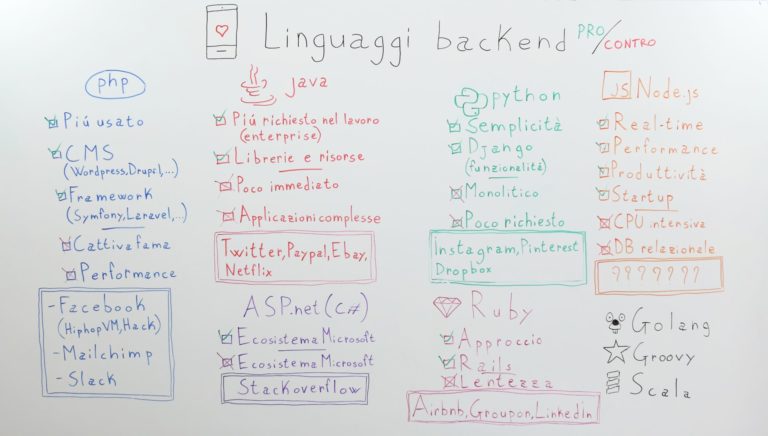 Linguaggi backend PRO/CONTRO
php
Piú usato
CMS
(Wordpress, Drupal,...)
Framework
(Symfony, Laravel,..)
Cattiva fama
Performance
- Facebook
(HiphopVM, Hack)
- Mailchimp
- Slack
java
Piú richiesto nel lavoro
(enterprise)
Librerie e risorse
Poco immediato
Applicazioni complesse
Twitter, Paypal, Ebay,
Netflix
ASP.net (C#)
Ecosistema Microsoft
Ecosistema Microsoft
Stackoverflow
python
Semplicità
Django
(funzionalità)
Monolitico
Poco richiesto
Instagram, Pinterest
Dropbox
Ruby
Approccio
Rails
Lentezza
Airbnb, Groupon, Linkedin
JS Node.js
Real-time
Performance
Produttività
Startup
CPU intensiva
DB relazionale
???????
Golang
Groovy
Scala